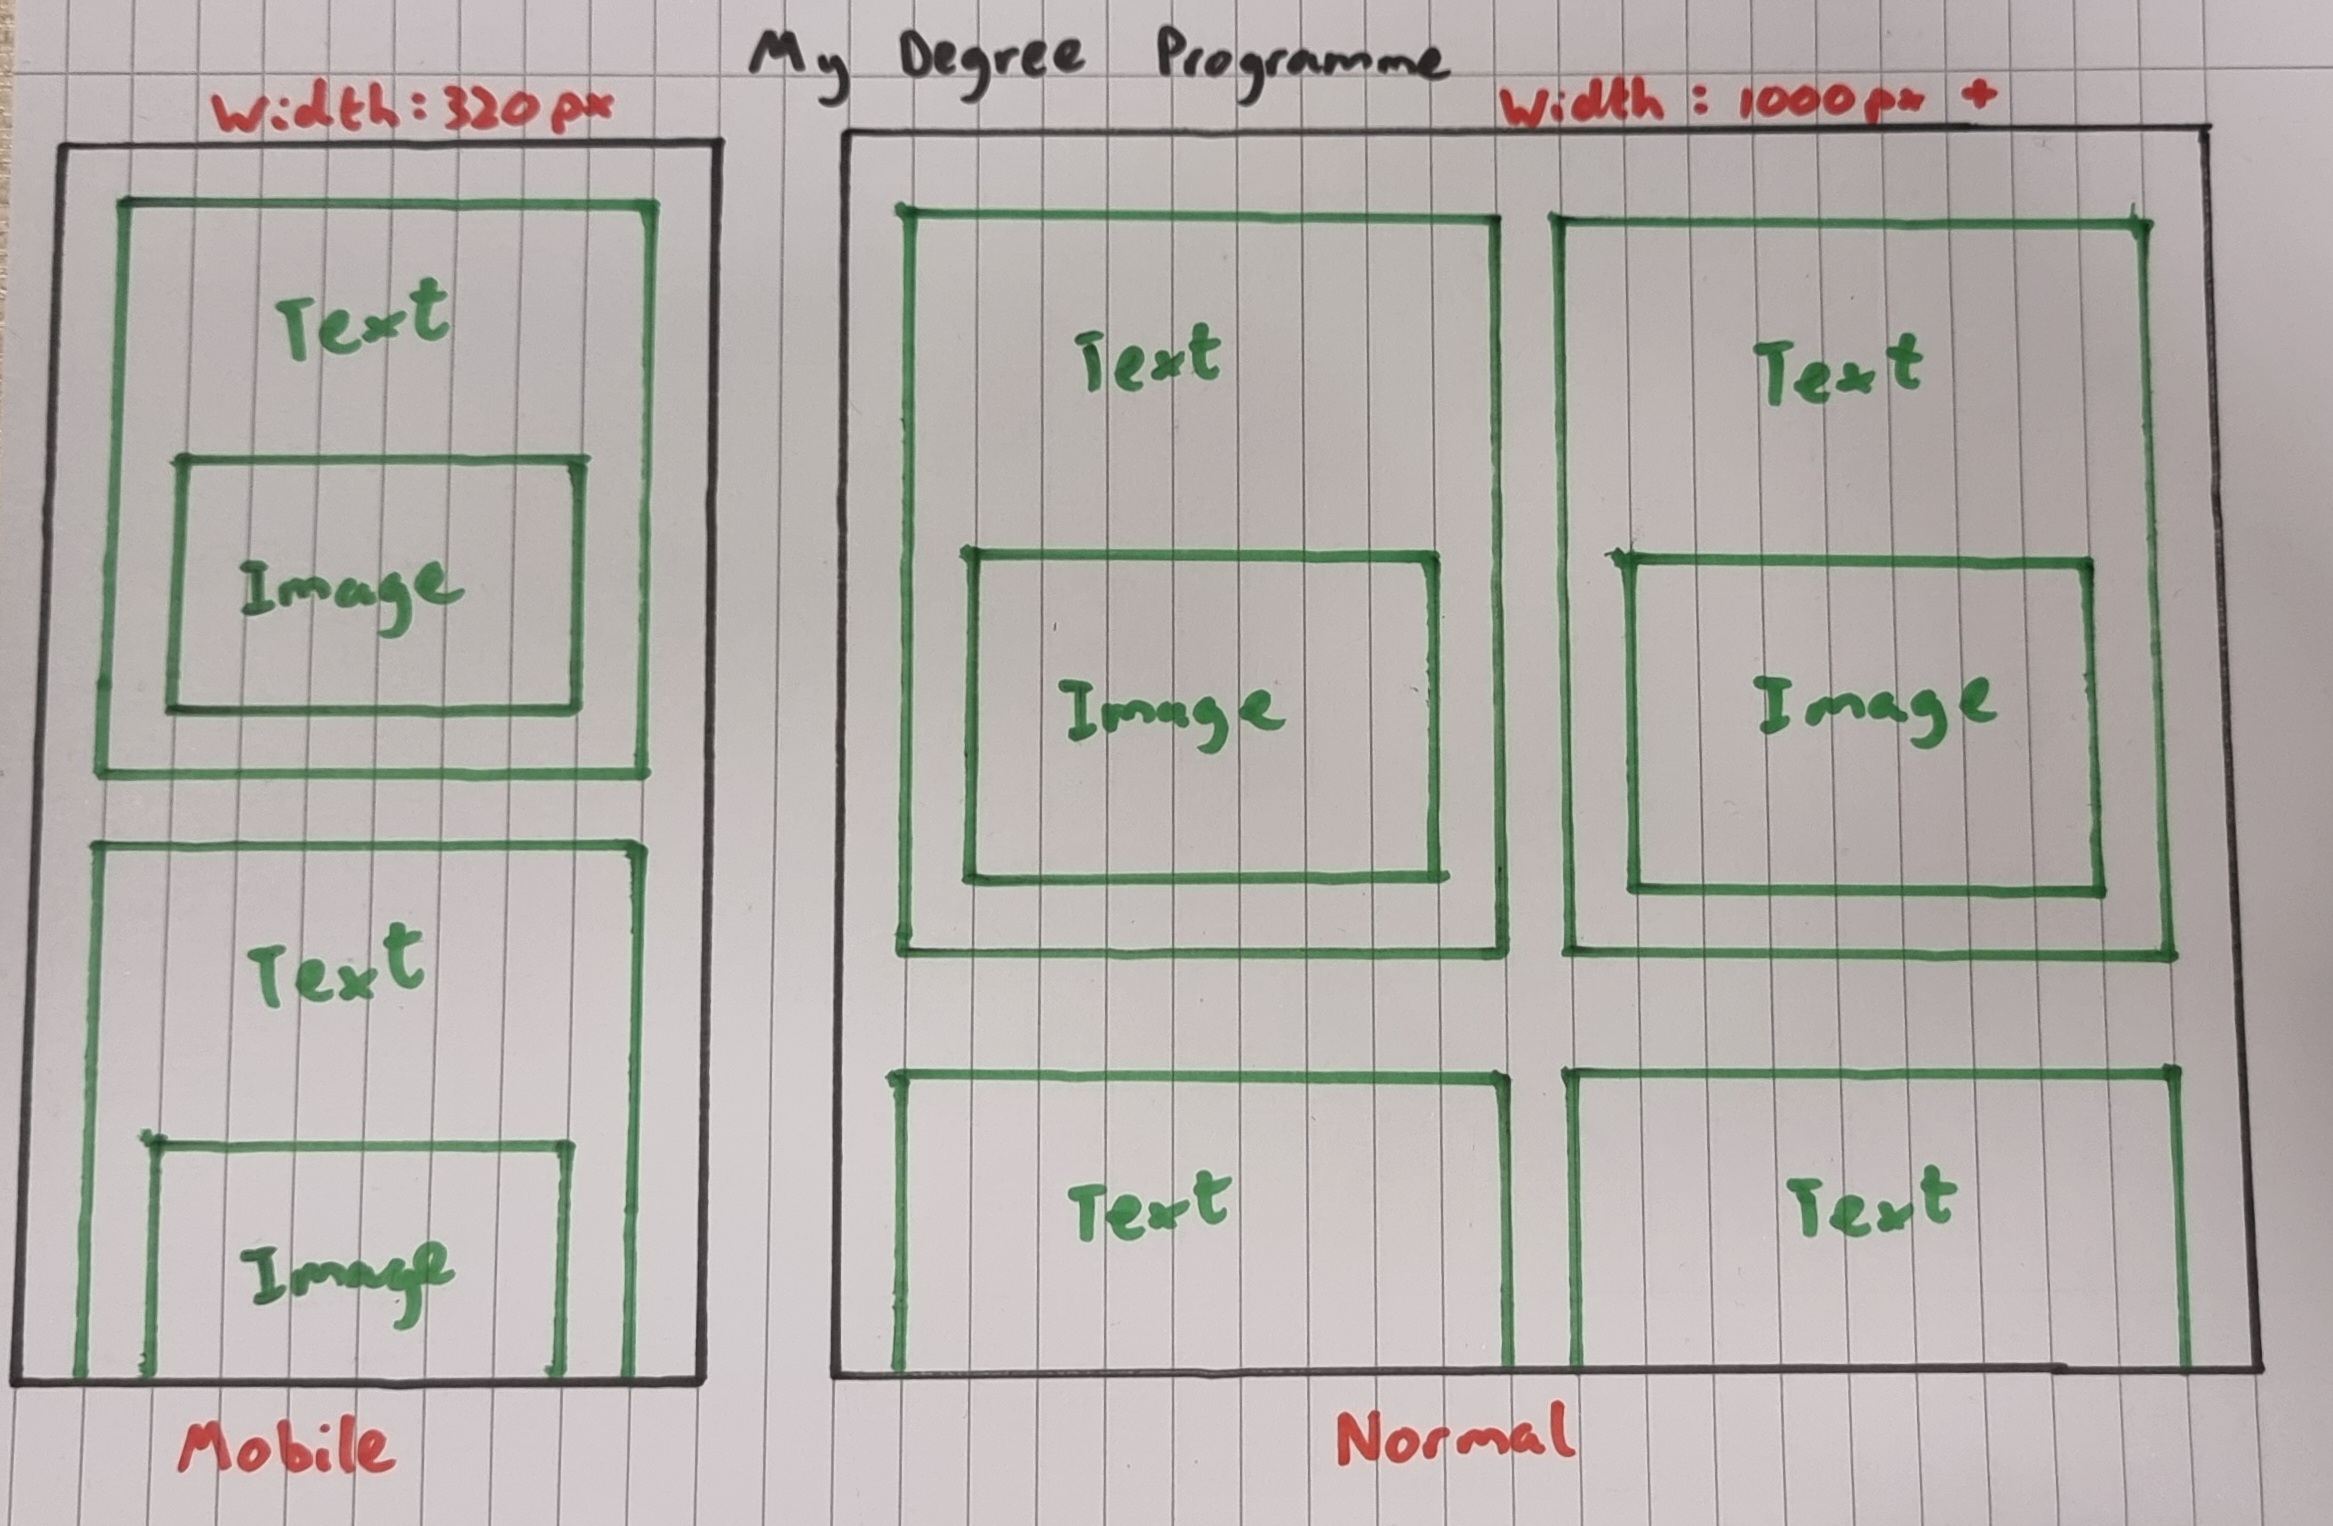 My Degree Programme
Width: 320px
Text
Image
Text
Image
Mobile
Width: 1000px +
Text
Text
Image
Image
Text
Text
Normal